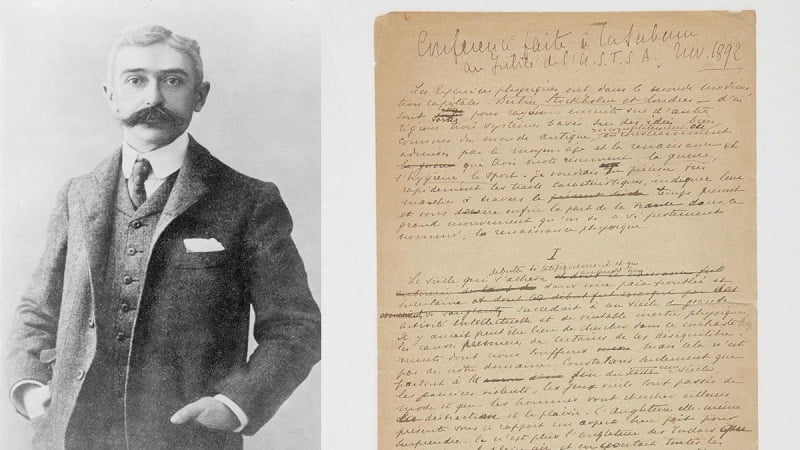 Conférence faite à la Sorbonne
au Jubilé de l'U.S.F.S.A. Nov. 1892
Les Exercices physiques ont dans le monde moderne
trois capitales: Berlin, Stockholm et Londres — d'où
sont sortis pour rayonner ensuite sur d'autres
régions trois systèmes basés sur des idées bien
connues du monde antique, incomplètement
admises par le moyen-age et la renaissance et
que trois mots résument: la guerre,
l'hygiène, le sport. Je voudrais en préciser très
rapidement les traits caractéristiques, indiquer leur
marche à travers le temps présent
et vous dire enfin la part de la France dans ce
grand mouvement qu'on a si justement
nommé, la renaissance physique
I
Le siècle qui s'achève
dans une paix
incertaine et dont les
succédait à un siècle de grande
activité intellectuelle et de véritable inertie physique.
Il y aurait peut être lieu de chercher dans ce contraste
les causes premières de certains de ces déséquilibre-
ments dont nous souffrons mais cela n'est
pas de notre domaine. Constatons seulement que
partout à la fin du siècle,
les exercices violents, les jeux virils sont passés de
mode et que les hommes vont chercher ailleurs
la distraction et le plaisir. L'Angleterre elle-même
présente sous ce rapport un aspect bien fait pour
surprendre. Ce n'est plus l'Angleterre des Tudors
plein air et toutes les